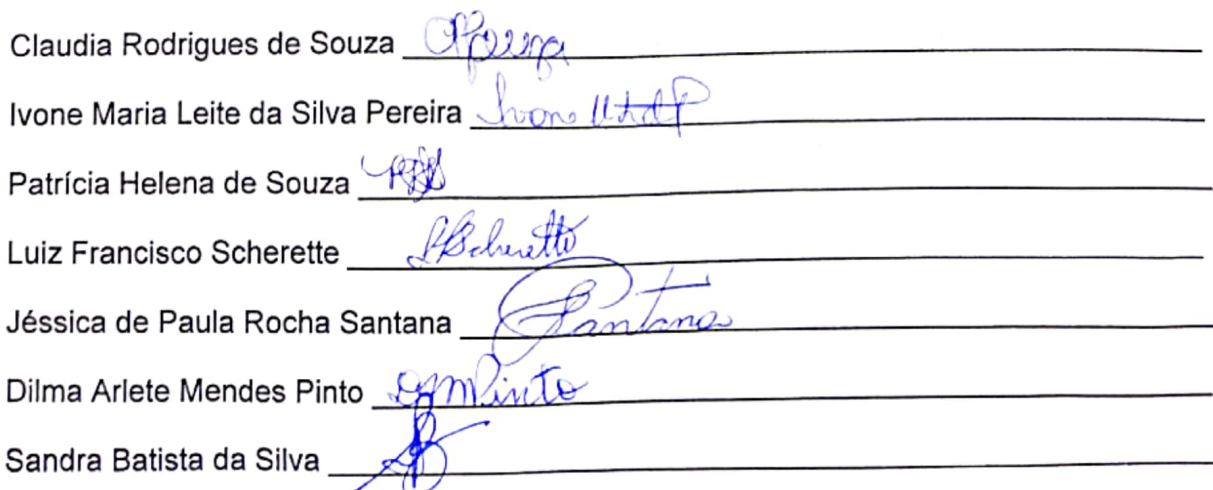 Claudia Rodrigues de Souza
Ivone Maria Leite da Silva Pereira Ivone
Patrícia Helena de Souza
Luiz Francisco Scherette
Jéssica de Paula Rocha Santana Santana
Dilma Arlete Mendes Pinto DAmPinto
Sandra Batista da Silva